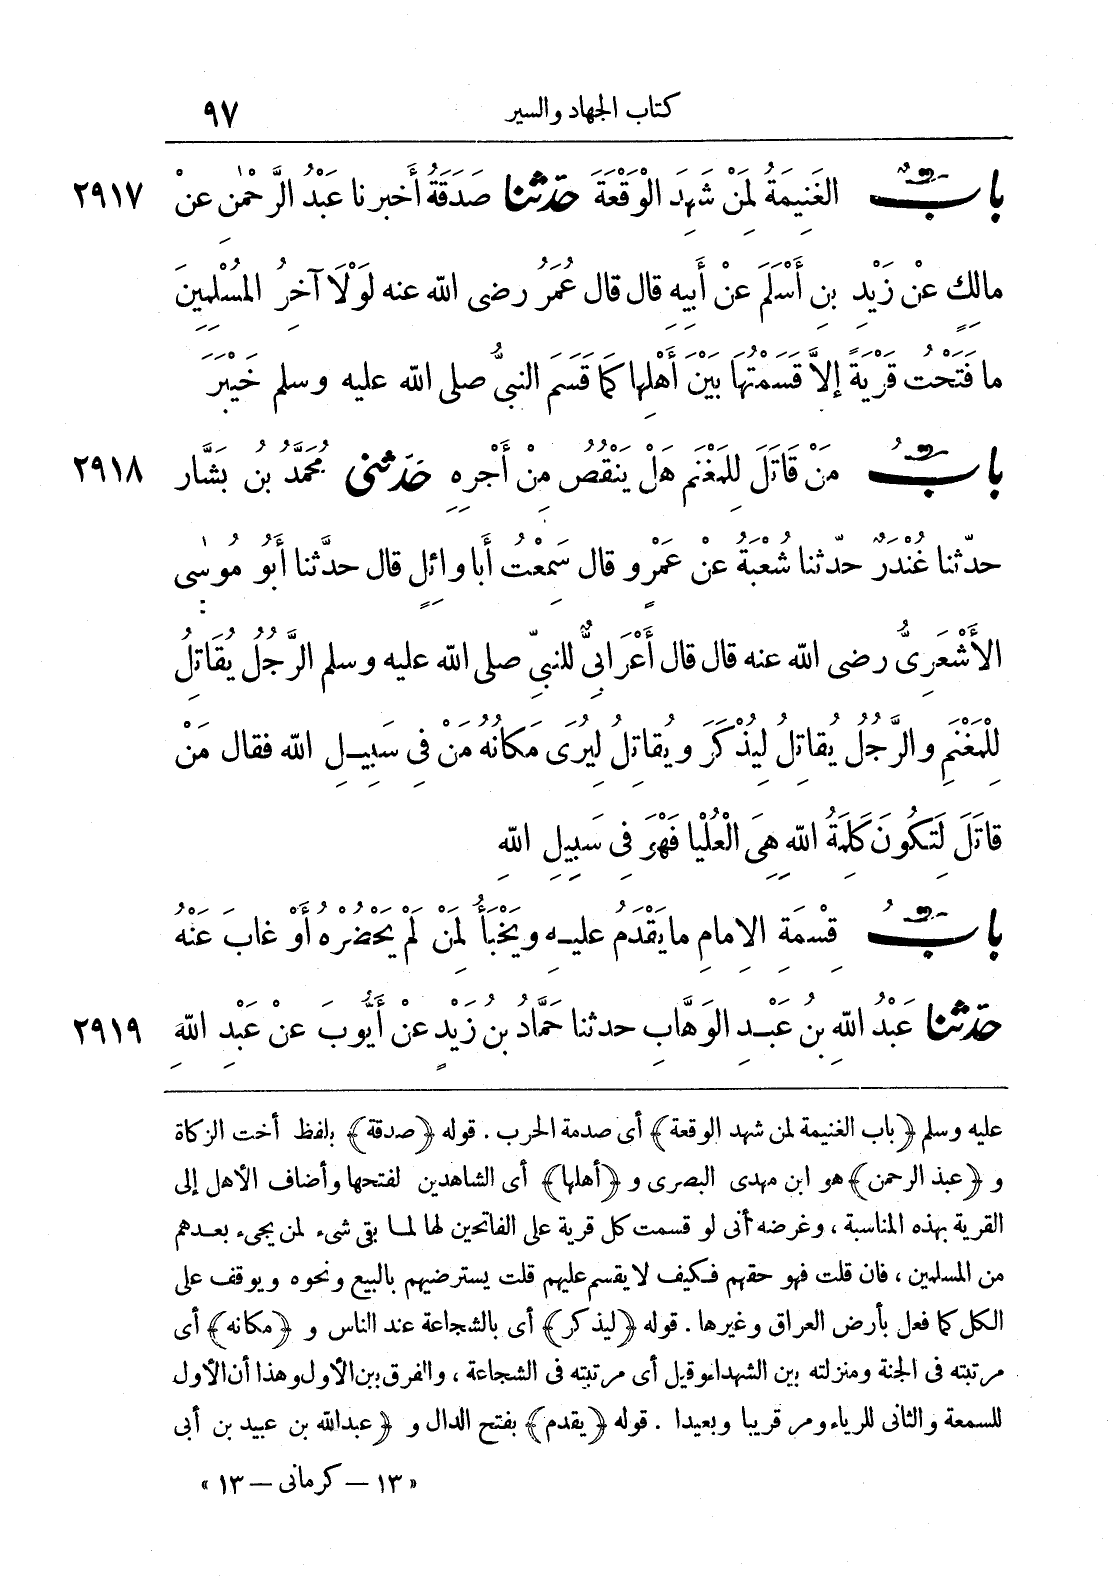 كتاب الجهاد والسير ٩٧
بابٌ الغَنِيمَةُ لِمَنْ شَهِدَ الْوَقْعَةَ حدّثنا صَدَقَةُ أَخبرنا عَبْدُ الرَّحْمٰنِ عَنْ ٢٩١٧
مالِكٍ عَنْ زَيْدِ بنِ أَسْلَمَ عَنْ أَبِيهِ قال قال عُمَرُ رضى الله عنه لَوْلَا آخِرُ المُسْلِمِينَ
ما فَتَحْتُ قَرْيَةً إلاَّ قَسَمْتُهَا بَيْنَ أَهْلِها كَمَا قَسَمَ النبىُّ صلى الله عليه وسلم خَيْبَرَ
بابُ مَنْ قَاتَلَ لِلمَغْنَمِ هَلْ يَنْقُصُ مِنْ أَجْرِهِ حَدّثنى مُحَمَّدُ بنُ بَشَّارٍ ٢٩١٨
حدّثنا غُنْدَرٌ حدّثنا شُعْبَةُ عَنْ عَمْرٍو قال سَمِعْتُ أَبا وائِلٍ قال حدّثنا أَبُو مُوسٰى
الأَشْعَرِىُّ رضى الله عنه قال قال أَعْرَابِىٌّ للنبىِّ صلى الله عليه وسلم الرَّجُلُ يُقَاتِلُ
لِلْمَغْنَمِ والرَّجُلُ يُقاتِلُ لِيُذْكَرَ ويُقاتِلُ لِيُرَى مَكانُهُ مَنْ فِى سَبِيلِ الله فقال مَنْ
قاتَلَ لِتَكُونَ كَلِمَةُ اللهِ هِىَ الْعُلْيا فَهْوَ فِى سَبِيلِ اللهِ
بابُ قِسْمَةِ الامامِ ما يَقْدَمُ عليهِ ويَخْبَأُ لِمَنْ لَمْ يَحْضُرْهُ أَوْ غابَ عَنْهُ
حدّثنا عَبْدُ اللهِ بنُ عَبْدِ الوَهَّابِ حدثنا حَمَّادُ بنُ زَيْدٍ عَنْ أَيُّوبَ عَنْ عَبْدِ اللهِ ٢٩١٩
عليه وسلم ﴿باب الغنيمة لمن شهد الوقعة﴾ أى صدمة الحرب. قوله ﴿صدقة﴾ بلفظ أخت الزكاة
و ﴿عبد الرحمن﴾ هو ابن مهدى البصرى و ﴿أهلها﴾ أى الشاهدين لفتحها وأضاف الأهل إلى
القرية بهذه المناسبة ، وغرضه أنى لو قسمت كل قرية على الفاتحين لها لما بقى شىء لمن يجىء بعدهم
من المسلمين ، فان قلت فهو حقهم فكيف لا يقسم عليهم قلت يسترضيهم بالبيع ونحوه ويوقف على
الكل كما فعل بأرض العراق وغيرها. قوله ﴿ليذكر﴾ أى بالشجاعة عند الناس و ﴿مكانه﴾ أى
مرتبته فى الجنة ومنزلته بين الشهداء وقيل أى مرتبته فى الشجاعة ، والفرق بين الأول وهذا أن الأول
للسمعة والثانى للرياء ومر قريبا وبعيدا. قوله ﴿يقدم﴾ بفتح الدال و ﴿عبدالله بن عبيد بن أبى
« ١٣ – كرمانى – ١٣ »